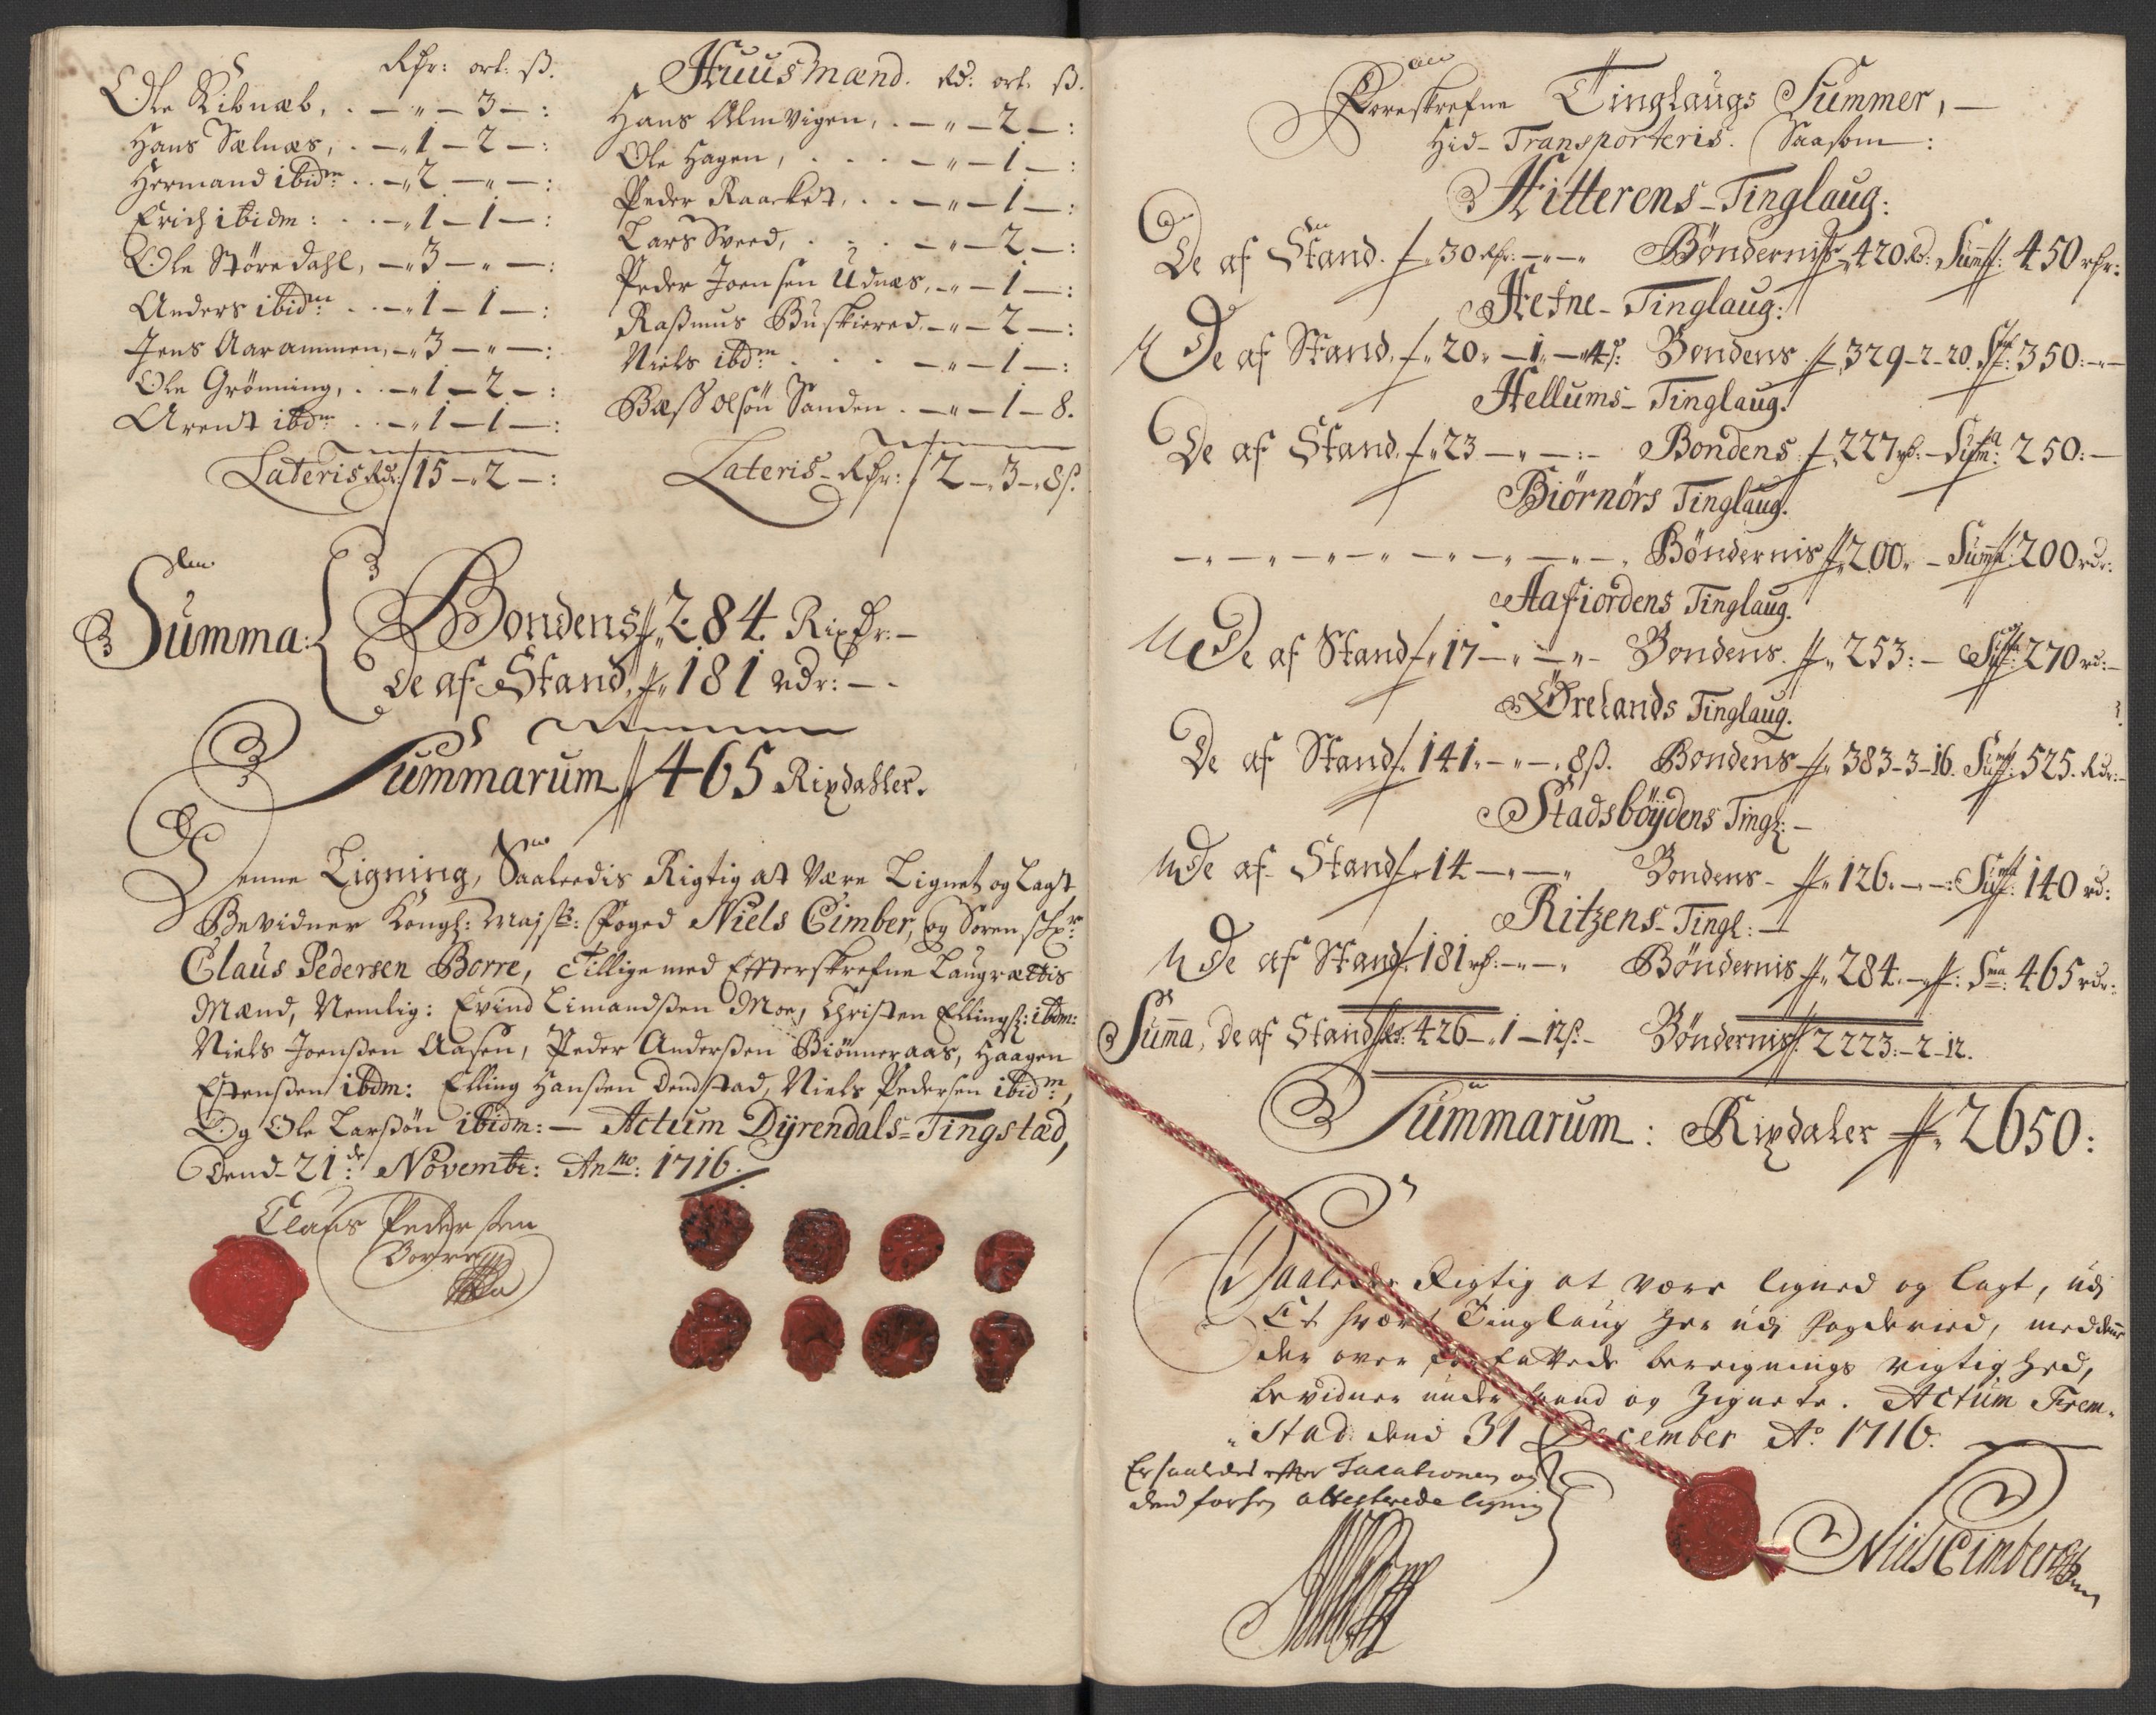 Rdr: ort: ß.
Ole Ribnæb, . — „ — 3 — :
Hans Sælnæs, . — „ 1 — 2 — :
Hermand ibidm: . . — „ 2 — „ — :
Erich ibidm: . . — „ 1 — 1 — :
Ole Støredahl, — „ 3 — „ — :
Anders ibidm: . . — „ 1 — 1 — :
Jens Aarammen, — „ 3 — „ — :
Ole Grønning, . . — „ 1 — 2 — :
Arent ibdm: . . — „ 1 — 1 — :
Lateris Rdr: 15 — „ 2 — :
Huusmænd. Rd: ort. ß.
Hans Almvigen, . — „ — 2 — :
Ole Hagen, . . . — „ — 1 — :
Peder Raarket, . . — „ — 1 — :
Lars Sveed, . . . — „ — 2 — :
Peder Joensen Udnæs, — „ — 1 — :
Raßmus Buskiered — „ — 2 — :
Niels ibdm . . . — „ — 1 — :
Olsøn Sanden . — „ — 1 — 8.
Lateris — Rdr: 2 — „ 3 — „ 8ß.
Summa: Bondens „ 284. Rixdr: —
De af Stand, „ 181 rdr: — -
Summarum 465 Rixdahler.
Denne Ligning, Saaleedis Rigtig at Være Lignet og Lagt
Bevidner Kongl: Majsts: Foged Niels Cimber, og Soren
Claus Pedersen Borre, Tillige med Effterskrefne Laugrættis
Mænd, Nemlig: Evind Limandßen Moe, Christen Ellingß: ibdm:
Niels Joenßen Aasen, Peder Anderßen Biönneraas, Haagen
Estenßen ibdm: Elling Hanßen Dendstad, Niels Pedersen ibidm:,
Og Ole Larßön ibidm: — Actum Dÿrendals=Tingstæd,
Dend 21de: Novembr: Anno: 1716.
Claus Pedersen
Borre
Foreskrefne Tinglaugs Summer, —
Hid-Transporteris. Saasom — :
Hitterens-Tinglaug:
De af Stand. „ 30 Rdr: — „ — „ Bönderniss „ 420 Rd: Summa: 450 rdr:
Hefne-Tinglaug:
De af Stand, „ 20 „ — 1 „ — „ 4ß: Bondens „ 329 - 2 - 20. Sma: 350: — „ —
Hellums-Tinglaug.
De af Stand, „ 23 — „ — : - Bondens „ 227 rd: — Suma: 250: —
Biörnörs Tinglaug.
— „ — „ — „ — „ — „ — „ — „ — „ Böndernis „ 200 „ - Summa: 200 rdr:
Aafiordens Tinglaug.
De af Stand „ 17 — „ — „ - Bondens. „ 253: — Suma: 270 rd: —
Örelands Tinglaug.
De af Stand 141. — „ — „ 8ß. Bondens „ 383 - 3 - 16. Suma: 525. Rdr: —
Stadsböÿdens Tingl: —
De af Stand „ 14 — „ — „ Bondens - „ 126. — „ — : Suma: 140 rd:
Ritzens-Tingl: —
De af Stand. 181 rd: — „ — „ Böndernis „ 284. — „ — : Sma: 465 rdr:
Summa, De af Stand Rd: 426 — „ 1 — 12ß. - Bönderniss 2223: - 2 - 12.
Summarum: Rixdaler „ 2650:
Saaledes Rigtig at være ligned og lagt, udj
Et hvært Tinglaug her udj fogderied, med denne
der over forfattede bereignings rigtighed,
bevidner under haand og Zignete. Actum Trem„
„stad dend 31 December Ao. 1716.
Er saaledes efter Taxationen og
dend forhen attesterede ligning
Niels Cimber